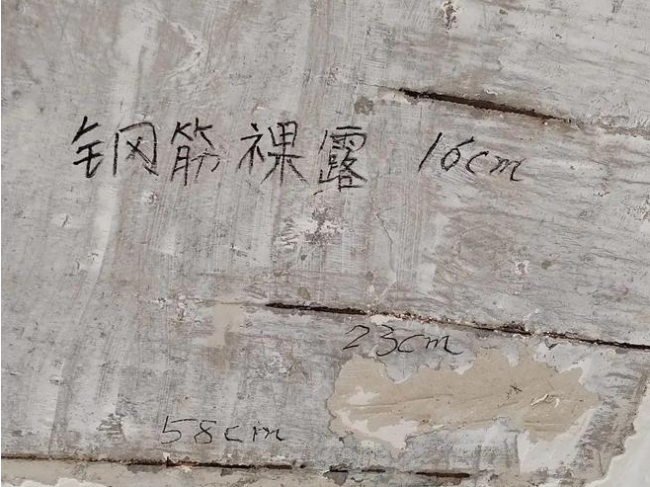 钢筋裸露 16cm
23cm
58cm